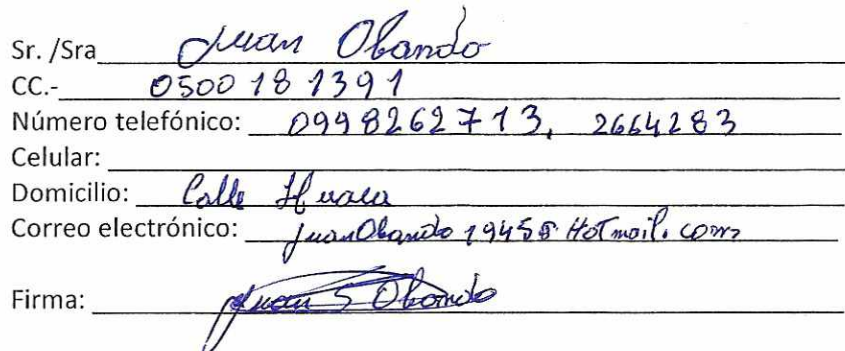 Sr. /Sra Juan Obando
CC.- 0500181391
Número telefónico: 0998262713, 2664283
Celular:
Domicilio: Calle Huaca
Correo electrónico: juanObando 1945 Hotmail.com
Firma: Juan S Obando